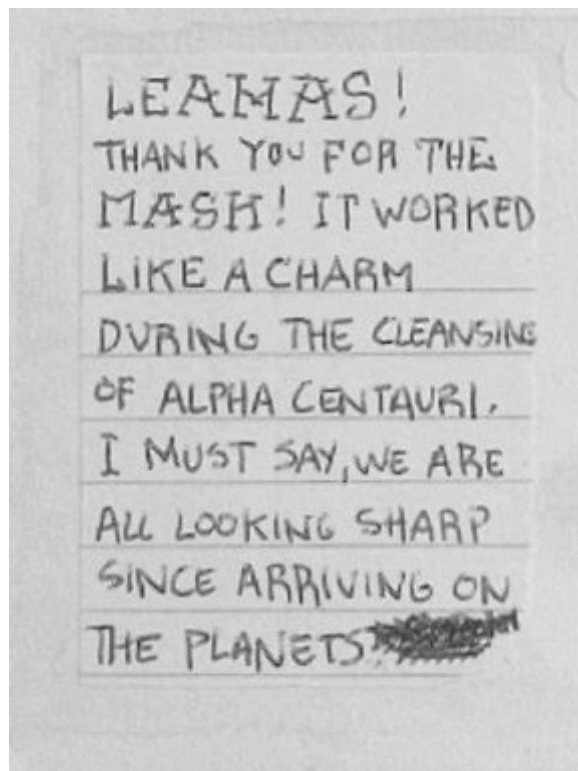 LEAMAS!
THANK YOU FOR THE
MASK! IT WORKED
LIKE A CHARM
DURING THE CLEANSING
OF ALPHA CENTAURI.
I MUST SAY, WE ARE
ALL LOOKING SHARP
SINCE ARRIVING ON
THE PLANETS.